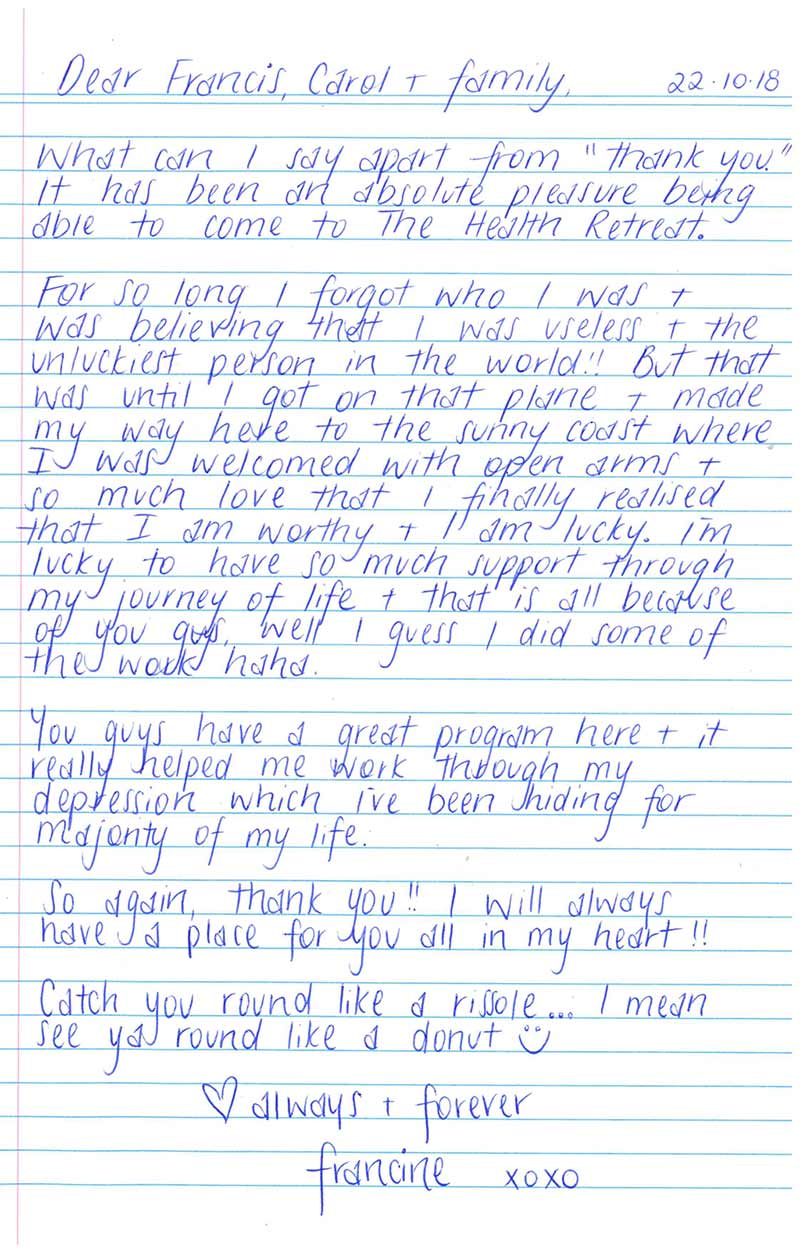 Dear Francis, Carol + family,
22.10.18
What can I say apart from "thank you."
It has been an absolute pleasure being
able to come to The Health Retreat.
For so long I forgot who I was +
was believing that I was useless + the
unluckiest person in the world!! But that
was until I got on that plane + made
my way here to the sunny coast where
I was welcomed with open arms +
so much love that I finally realised
that I am worthy + I am lucky. I'm
lucky to have so much support through
my journey of life + that is all because
of you guys, well I guess I did some of
the work haha.
You guys have a great program here + it
really helped me work through my
depression which i've been hiding for
majority of my life.
So again, thank you!! I will always
have a place for you all in my heart!!
Catch you round like a rissole... I mean
see ya round like a donut
always + forever
francine xoxo